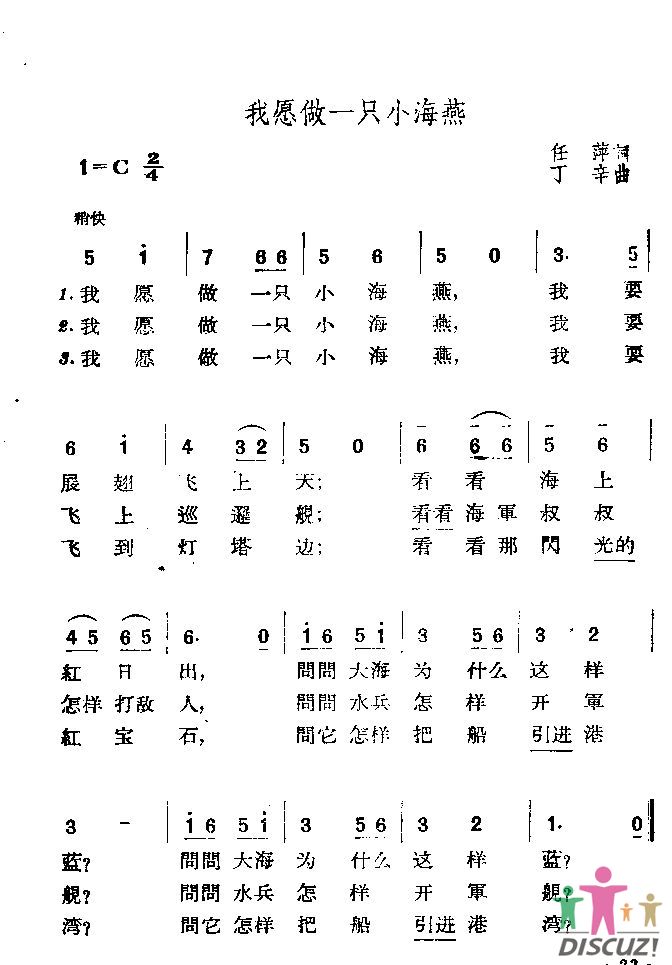 我愿做一只小海燕
1=C 2/4
任萍词
丁辛曲
稍快
5 i | 7 6 6 | 5 6 | 5 0 | 3. 5 |
1.我愿做一只小海燕，我要
2.我愿做一只小海燕，我要
3.我愿做一只小海燕，我要
6 i | 4 3 2 | 5 0 | 6 6 6 | 5 6
展翅飞上天；看看海上
飞上巡邏舰；看看海軍叔叔
飞到灯塔边；看看那閃光的
4 5 6 5 | 6. 0 | i 6 5 i | 3 5 6 | 3 2
紅日出，問問大海为什么这样
怎样打敌人，問問水兵怎样开軍
紅宝石，問它怎样把船引进港
3 - | i 6 5 i | 3 5 6 | 3 2 | 1. 0 ‖
蓝？問問大海为什么这样蓝？
舰？問問水兵怎样开軍舰？
湾？問它怎样把船引进港湾？
DISCUZ!